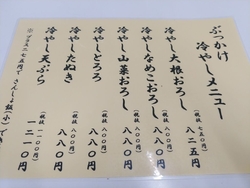 ぶっかけ
冷やしメニュー
冷やし大根おろし (税抜 七五〇円) 八二五円
冷やしなめこおろし (税抜 八〇〇円) 八八〇円
冷やし山菜おろし (税抜 八〇〇円) 八八〇円
冷やしとろろ (税抜 八〇〇円) 八八〇円
冷やしたぬき (税抜 八〇〇円) 八八〇円
冷やし天ぷら (税抜 一一〇〇円) 一二一〇円
プラス二七五円で